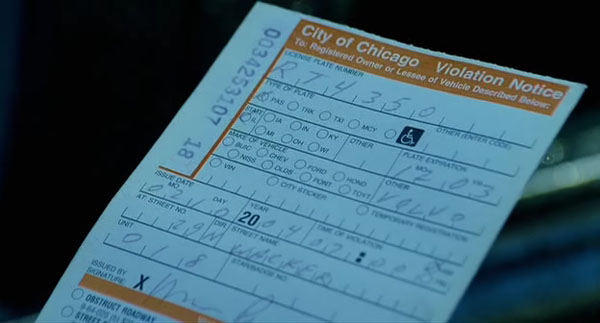 City of Chicago Violation Notice
To: Registered Owner or Lessee of Vehicle Described Below:
0034253107 18
LICENSE PLATE NUMBER
RT4350
TYPE OF PLATE
PAS TRK TXI MCY OTHER (ENTER CODE)
STATE
IL IA IN KY OTHER
MI OH WI
PLATE EXPIRATION
MO.
12 03
MAKE OF VEHICLE
BUIC CHEV FORD HOND OTHER
NISS OLDS PONT TOYT VOLVO
VIN CITY STICKER TEMPORARY REGISTRATION
ISSUE DATE
MO. DAY YEAR TIME OF VIOLATION
2004
AT: STREET NO. DIR. STREET NAME
WACKER
UNIT STAR/BADGE NO.
018
ISSUED BY
SIGNATURE X
OBSTRUCT ROADWAY
STREET